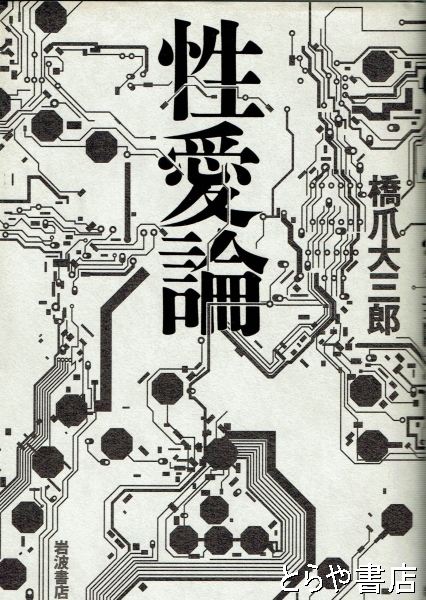 性愛論
橋爪大三郎
岩波書店
とらや書店